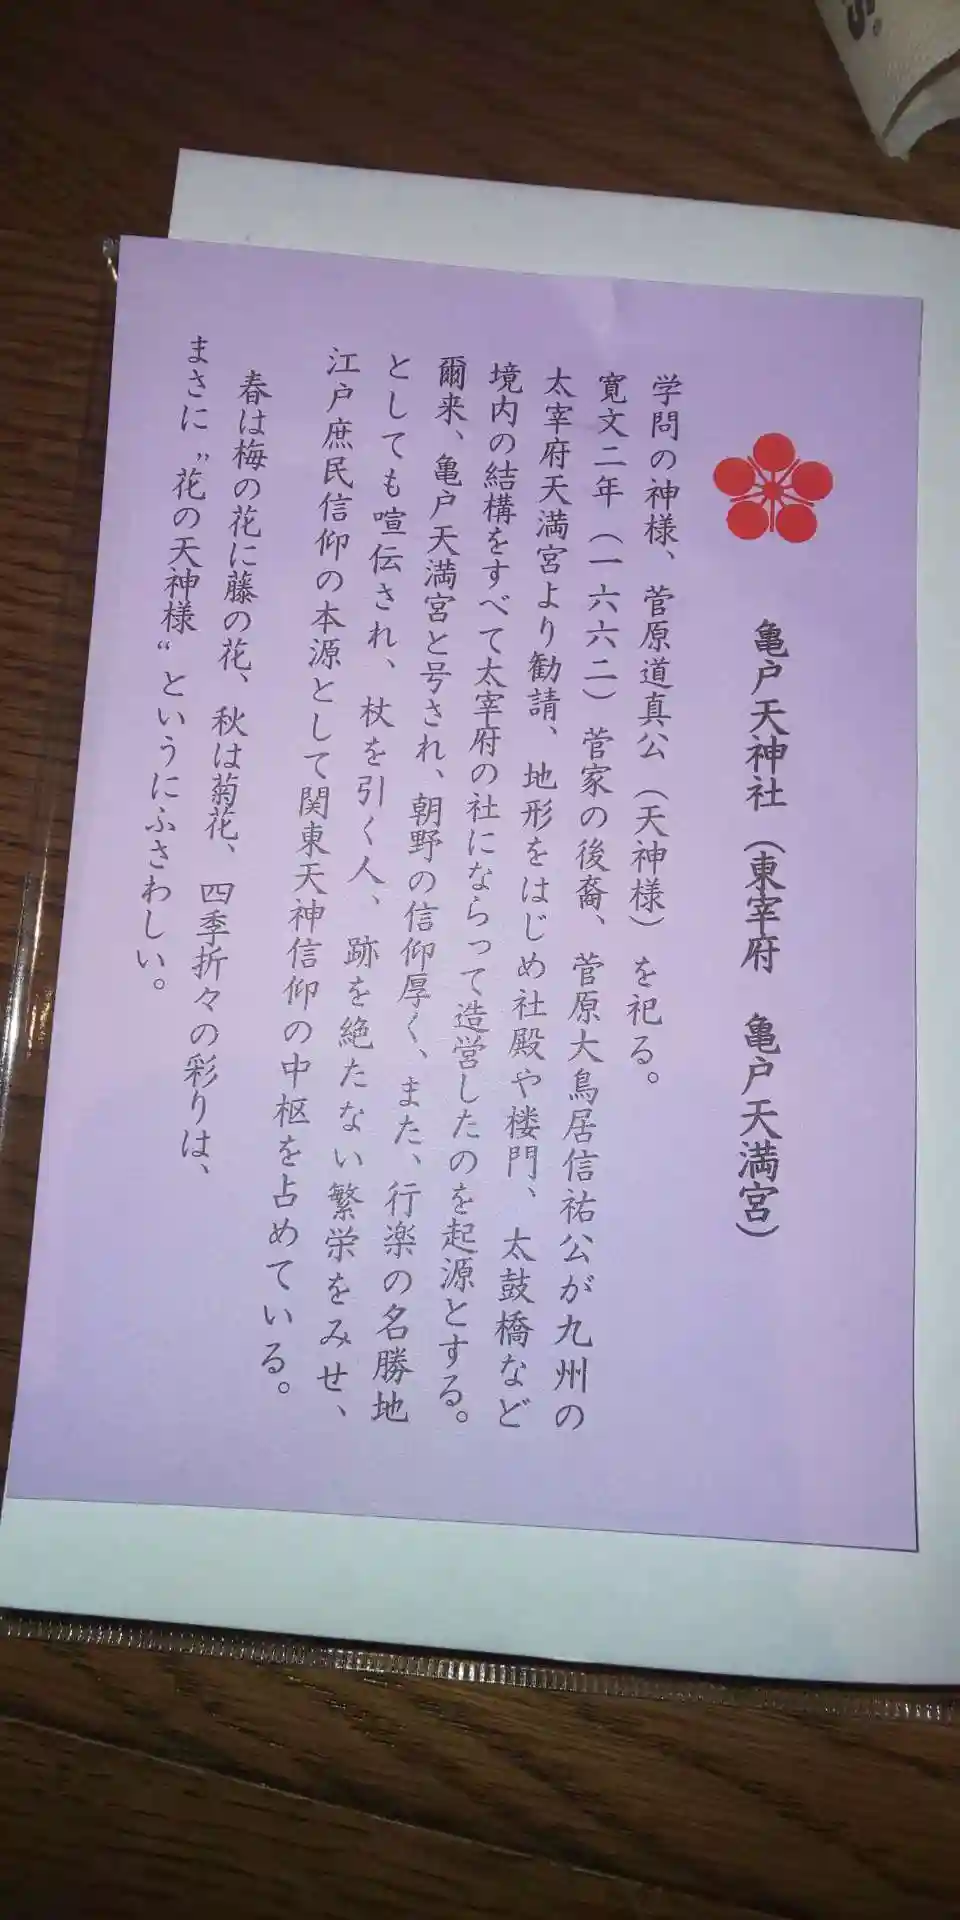 亀戸天神社（東宰府　亀戸天満宮）
学問の神様、菅原道真公（天神様）を祀る。
寛文二年（一六六二）菅家の後裔、菅原大鳥居信祐公が九州の
太宰府天満宮より勧請、地形をはじめ社殿や楼門、太鼓橋など
境内の結構をすべて太宰府の社にならって造営したのを起源とする。
爾来、亀戸天満宮と号され、朝野の信仰厚く、また、行楽の名勝地
としても喧伝され、杖を引く人、跡を絶たない繁栄をみせ、
江戸庶民信仰の本源として関東天神信仰の中枢を占めている。
春は梅の花に藤の花、秋は菊花、四季折々の彩りは、
まさに〝花の天神様〟というにふさわしい。
S.